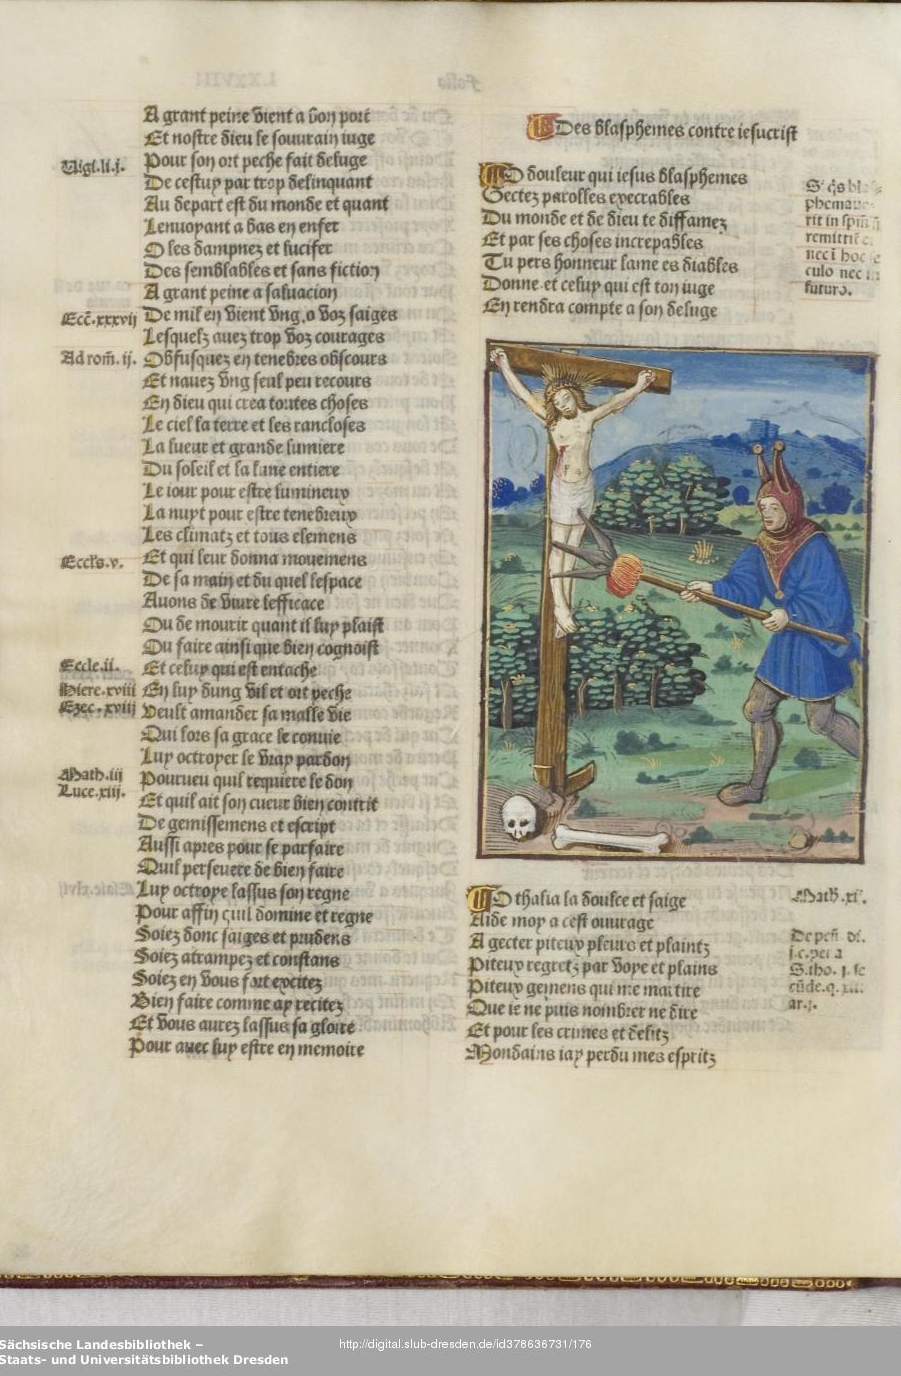 A grant peine vient a bon port
Et nostre dieu le souurain iuge
Pour son ort peche fait deluge
De cestuy par trop delinquant
Au depart est du monde et quant
Lenuoyant a bas en enfer
O les dampnez et lucifer
Des semblables et sans fiction
A grant peine a saluacion
De mil en vient vng, o voz saiges
Lesquelz auez trop voz courages
Obfusquez en tenebres obscours
Et nauez vng seul peu recours
En dieu qui crea toutes choses
Le ciel la terre et les rancloses
La lueur et grande lumiere
Du soleil et la lune entiere
Le iour pour estre lumineux
La nuyt pour estre tenebreux
Les climatz et tous elemens
Et qui leur donna mouemens
De sa main et du quel lespace
Auons de viure lefficace
Ou de mourir quant il luy plaist
Ou faire ainsi que bien cognoist
Et celuy qui est entache
En luy dung vil et ort peche
Veult amander sa malle vie
Qui lors sa grace le conuie
Luy octroyer le vray pardon
Pourueu quil requiere le don
Et quil ait son cueur bien contrit
De gemissemens et escript
Aussi apres pour se parfaire
Quil perseuere de bien faire
Luy octroye lassus son regne
Pour affin quil domine et regne
Soiez donc saiges et prudens
Soiez atrampez et constans
Soiez en vous fort excitez
Bien faire comme ay recitez
Et vous aurez lassus sa gloire
Pour auec luy estre en memoire
Vigi.li.j.
Ecc̄.xxxvij
Ad rom̄. ij.
Eccl's.v.
Eccle.ii.
Hiere.xviii
Ezec.xviij
Math.iij
Luce.xiij.
Des blasphemes contre iesucrist
O douleur qui iesus blasphemes
Gectez parolles execrables
Du monde et de dieu te diffamez
Et par ses choses increpables
Tu pers honneur lame es diables
Donne et celuy qui est ton iuge
En rendra compte a son deluge
remittit
nec ī hoc
culo nec
futuro.
O thalia la doulce et saige
Aide moy a cest ouurage
A gecter piteux pleurs et plaintz
Piteux regretz par voye et plains
Piteux gemens qui me martire
Que ie ne puis nombrer ne dire
Et pour les crimes et delitz
Mondains iay perdu mes espritz
Math.xi.
S.tho.
Sächsische Landesbibliothek –
Staats- und Universitätsbibliothek Dresden
http://digital.slub-dresden.de/id378636731/176